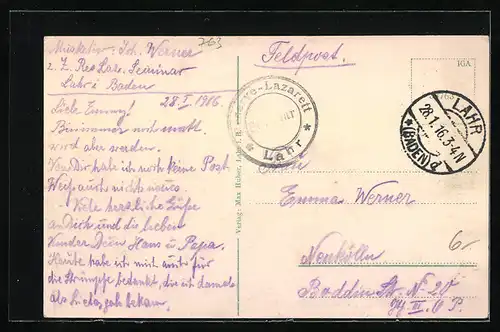 Musketier: Joh. Werner
z. Z. Res. Laz. Seminar
Lahr i Baden
28. I. 1916.
Liebe Emmy!
Bin immer noch matt
wird aber werden.
Von Dir habe ich noch keine Post
Weiß auch nichts neues.
Viele herzliche Grüße
an Dich und die lieben
Kinder Dein Hans u Papa.
Heute habe ich mich auch für
die Strümpfe bedankt, die ich damals
als bekam.
763
Feldpost.
Lazarett
* Lahr *
LAHR
28.1.16.3-4N
* (BADEN) d
Verlag: Max Huber,
Emma Werner
Neukölln
Boddinstr. N= 20
III. P.
6.-